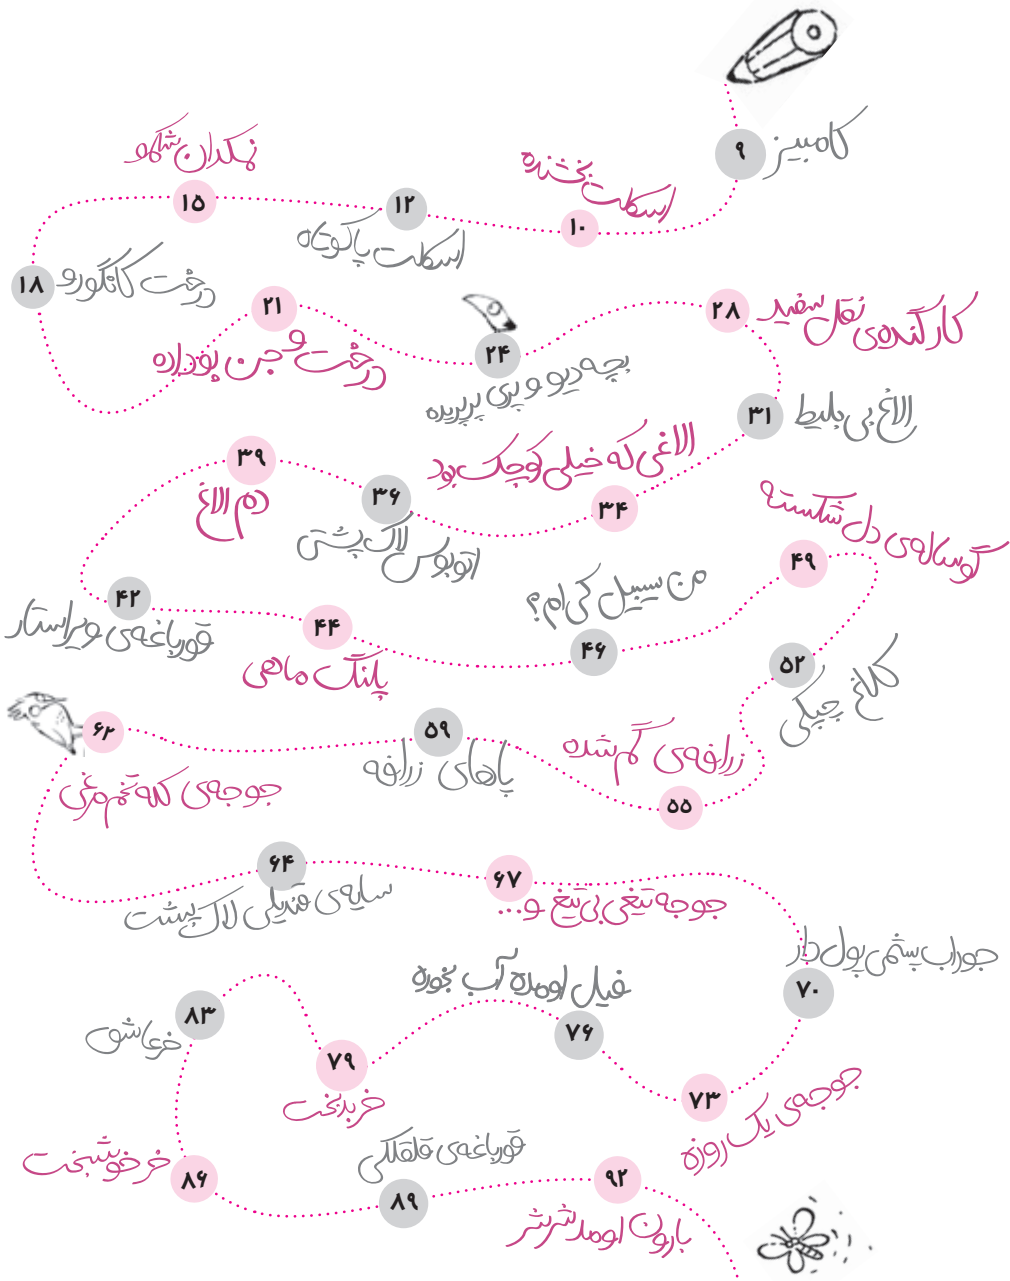 ۹
کامبیز
۱۰
اسکلت بخشنده
۱۲
اسکلت پا کوتاه
۱۵
نمکدان شکمو
۱۸
درخت کانگورو
۲۱
درخت و جن پوزداده
۲۴
بچه دیو و پری پرپریده
۲۸
کارگنده‌ی نقل سفید
۳۱
الاغ بی بلیط
۳۴
الاغی که خیلی کوچک بود
۳۶
اتوبوس لاک پشتی
۳۹
دم الاغ
۴۲
قورباغه‌ی ویراستار
۴۴
پلنگ ماهی
۴۶
من سیبیل کی ام؟
۴۹
گوساله‌ی دل شکسته
۵۲
کلاغ جیگی
۵۵
زرافه‌ی گم شده
۵۹
پاهای زرافه
۶۲
جوجه‌ی کله تخم مرغی
۶۴
سایه‌ی قندیلی لاک پشت
۶۷
جوجه تیغی بی تیغ و...
۷۰
جوراب پشمی پول دار
۷۳
جوجه‌ی یک روزه
۷۶
فیل اومده آب بخوره
۷۹
خر بدبخت
۸۳
خر عاشق
۸۶
خر خوشبخت
۸۹
قورباغه‌ی قلقلکی
۹۲
بارون اومد شرشر